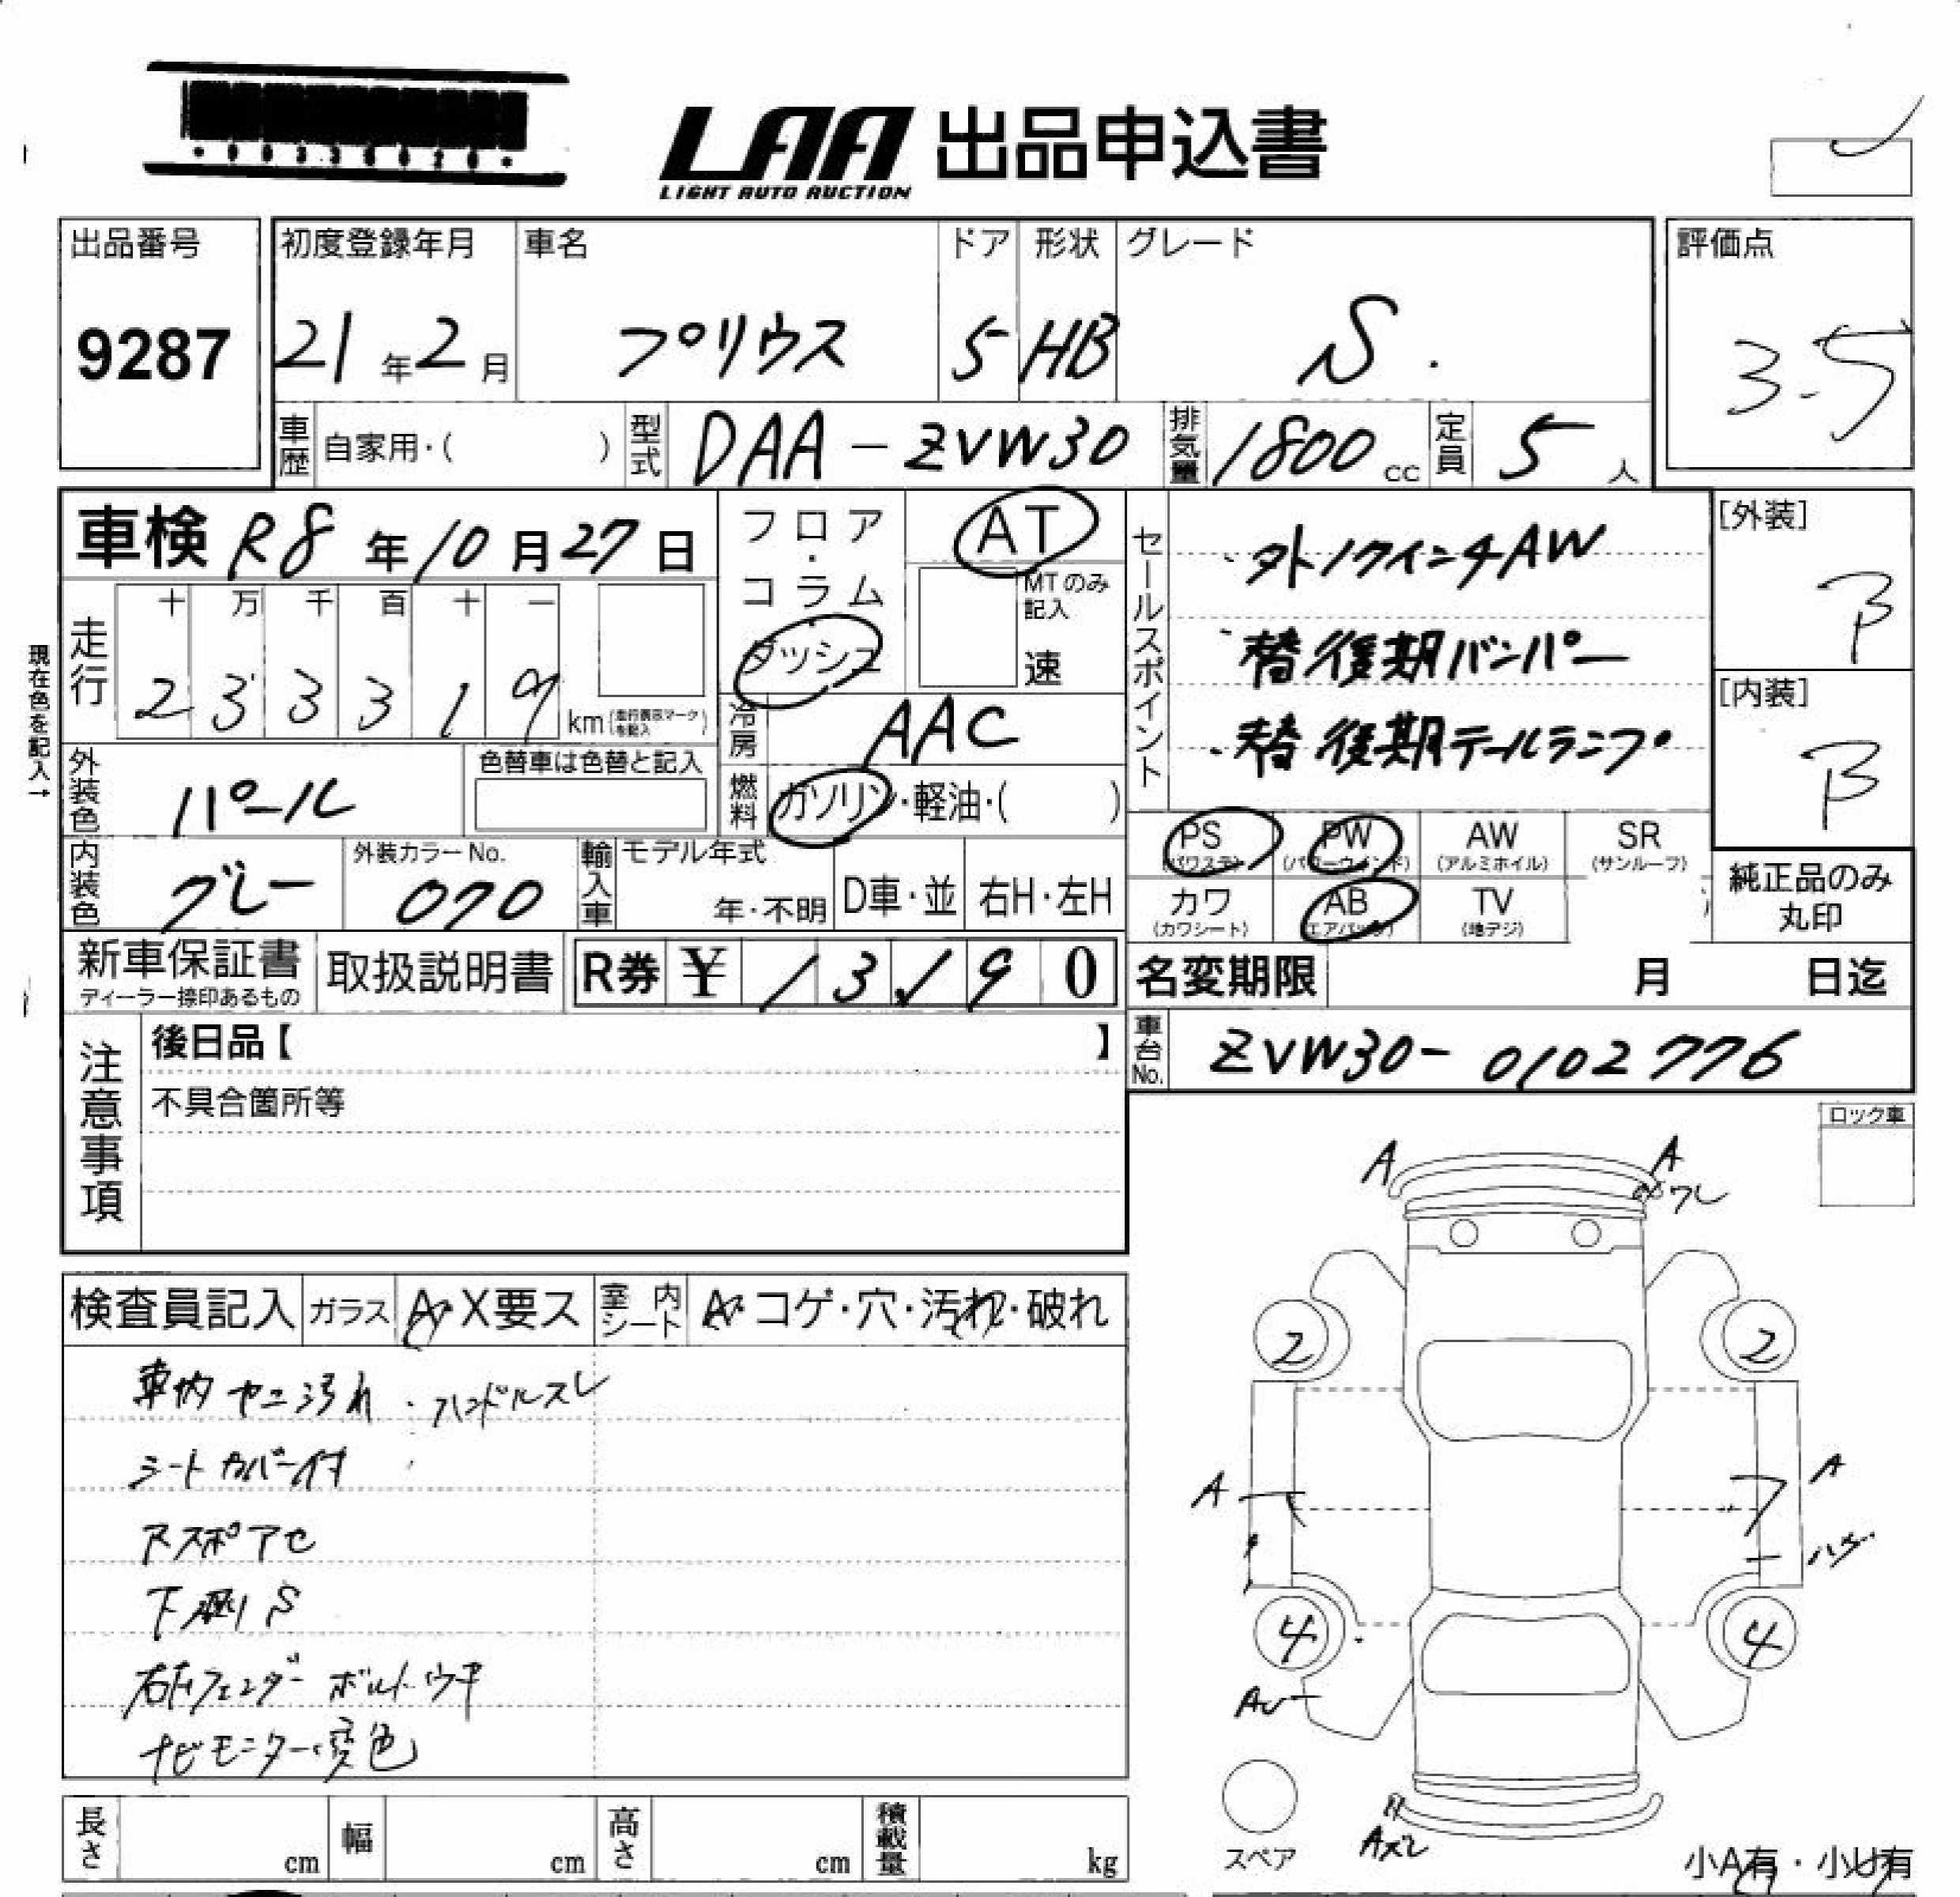 LAA 出品申込書
LIGHT AUTO AUCTION
出品番号 9287
初度登録年月 21年2月
車名 プリウス
ドア 5
形状 HB
グレード S.
評価点 3.5
車歴 自家用・( )
型式 DAA-ZVW30
排気量 1800cc
定員 5人
車検 R8年10月27日
フロア・コラム・ダッシュ
AT
MTのみ記入
速
セールスポイント
・外17インチAW
・替後期バンパー
・替後期テールランプ
[外装] B
[内装] B
現在色を記入→
走行 十 万 千 百 十 一
2 3 3 3 1 9 km (走行表示マークを記入)
冷房 AAC
外装色 パール
色替車は色替と記入
燃料 ガソリン・軽油・( )
内装色 グレー
外装カラーNo. 070
輸入車 モデル年式 年・不明 D車・並 右H・左H
PS (パワステ)
PW (パワーウインド)
AW (アルミホイル)
SR (サンルーフ)
カワ (カワシート)
AB (エアバック)
TV (地デジ)
純正品のみ丸印
新車保証書 ディーラー捺印あるもの
取扱説明書
R券 ¥ 1 3 1 9 0
名変期限 月 日迄
注意事項
後日品【 】
不具合箇所等
車台No. ZVW30-0102776
ロック車
検査員記入 ガラス A・X要ス 室内シート A・コゲ・穴・汚れ・破れ
車内ヤニ汚れ・ハンドルスレ
シートカバー付
Rスポアセ
下廻りS
右Fフェンダーボルトウキ
ナビモニター変色
A
A
ワレ
2
2
A
A
ハゲ
4
4
AU
Aズレ
スペア
小A有・小U有
長さ cm 幅 cm 高さ cm 積載量 kg